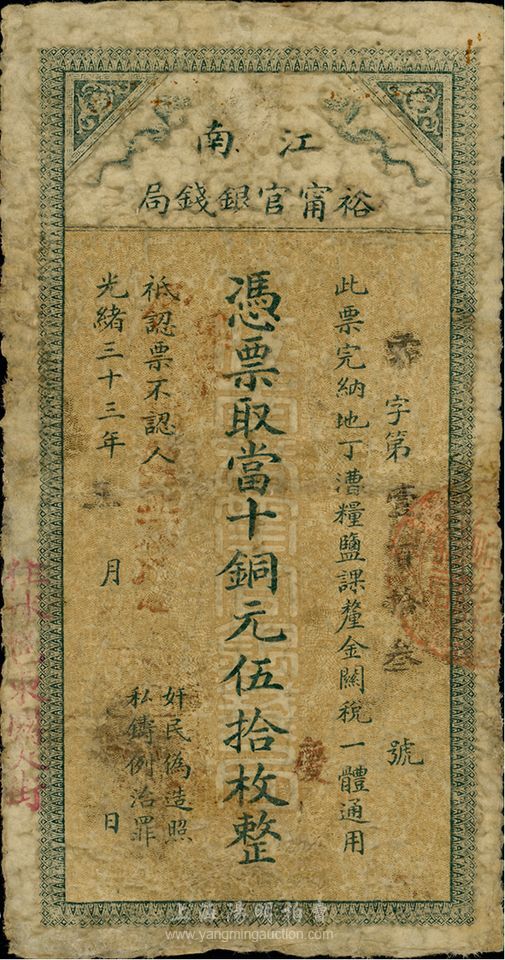 江南
裕甯官銀錢局
字第壹百拾叁號
此票完納地丁漕糧鹽課釐金關稅一體通用
憑票取當十銅元伍拾枚整
祗認票不認人
光緒三十三年五月日
奸民偽造照
私鑄例治罪
慶
上海陽明拍賣
www.yangmingauction.com